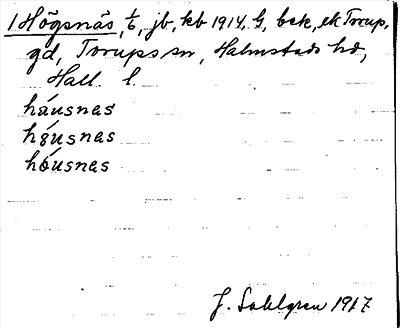 1 Högsnäs, 1/6, jb, kb 1914, G, bek, ek Torup,
gd, Torups sn, Halmstads hd,
Hall. l.
háusnas
hǿusnas
hóusnas
J. Sahlgren 1917